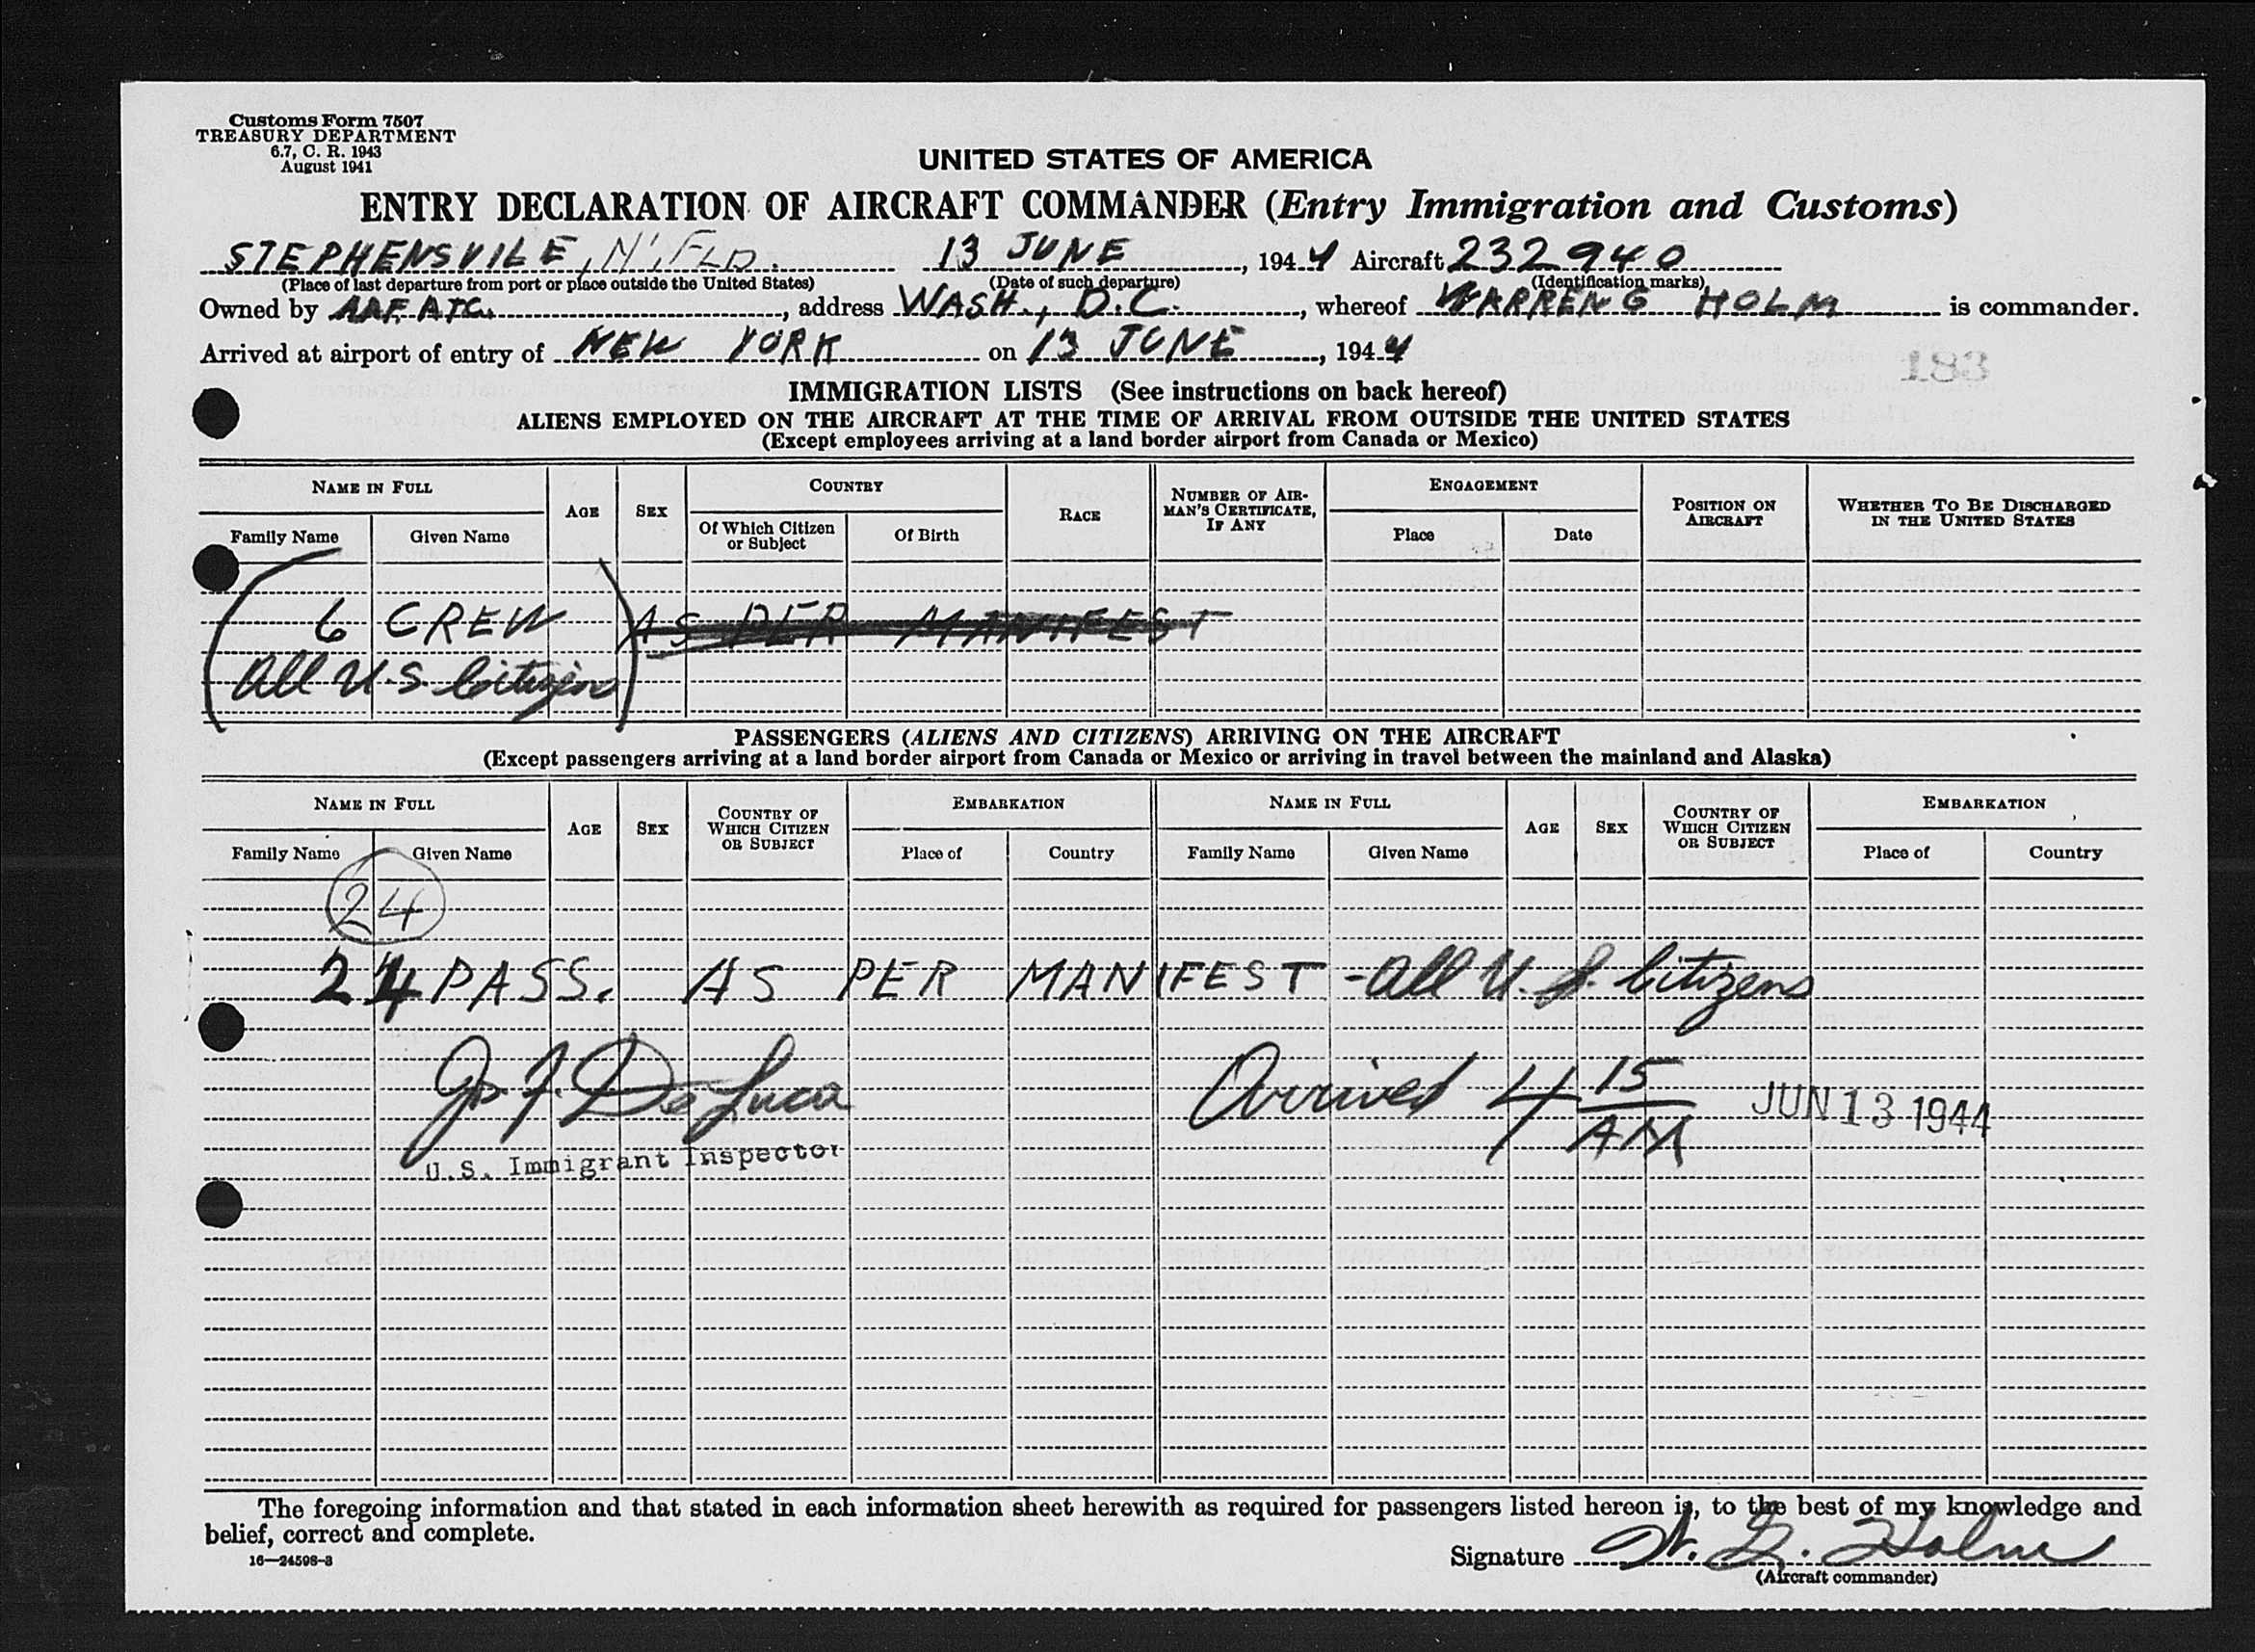 Customs Form 7507
TREASURY DEPARTMENT
6.7, C. R. 1943
August 1941
UNITED STATES OF AMERICA
ENTRY DECLARATION OF AIRCRAFT COMMANDER (Entry Immigration and Customs)
STEPHENSVILE, N'FLD. 13 JUNE, 1944 Aircraft 232940
(Place of last departure from port or place outside the United States) (Date of such departure) (Identification marks)
Owned by AAF. ATC., address WASH., D.C., whereof WARREN G HOLM is commander.
Arrived at airport of entry of NEW YORK on 13 JUNE, 1944
183
IMMIGRATION LISTS (See instructions on back hereof)
ALIENS EMPLOYED ON THE AIRCRAFT AT THE TIME OF ARRIVAL FROM OUTSIDE THE UNITED STATES
(Except employees arriving at a land border airport from Canada or Mexico)
NAME IN FULL AGE SEX COUNTRY RACE NUMBER OF AIRMAN'S CERTIFICATE, IF ANY ENGAGEMENT POSITION ON AIRCRAFT WHETHER TO BE DISCHARGED IN THE UNITED STATES
Family Name Given Name Of Which Citizen or Subject Of Birth Place Date
6 CREW AS PER MANIFEST
All U.S. Citizens
PASSENGERS (ALIENS AND CITIZENS) ARRIVING ON THE AIRCRAFT
(Except passengers arriving at a land border airport from Canada or Mexico or arriving in travel between the mainland and Alaska)
NAME IN FULL AGE SEX COUNTRY OF WHICH CITIZEN OR SUBJECT EMBARKATION NAME IN FULL AGE SEX COUNTRY OF WHICH CITIZEN OR SUBJECT EMBARKATION
Family Name Given Name Place of Country Family Name Given Name Place of Country
24
24 PASS. AS PER MANIFEST - All U.S. Citizens
Jos. F. De Luca Arrived 4 15 AM JUN 13 1944
U.S. Immigrant Inspector
The foregoing information and that stated in each information sheet herewith as required for passengers listed hereon is, to the best of my knowledge and
belief, correct and complete.
16—24598-3
Signature W. G. Holm
(Aircraft commander)